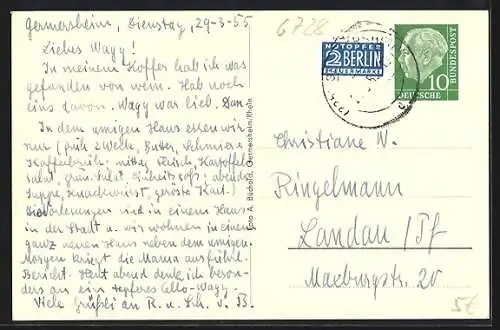 Germersheim, Dienstag, 29-3-55
Liebes Wagg!
In meinem Koffer hab ich was
gefunden von wem. Hab noch
eins davon. Wagg war lieb. Dan.
In dem amigen Haus essen wir
nur (früh 2 Weck, Butter,
Kaffee mittag Fleisch, Kartoffel
salat, grün. Salat, Einheitssoß; abends
Suppe, Knackwurst, geröste Kart.)
sind in einem Haus
in der Stadt u. wir wohnen in einem
ganz neuen Haus neben dem amigen.
Morgen kriegt die Mama ausführl.
Bericht. Heut abend denk ich beson-
ders an ein tapferes Cello-Wagg.
Viele Grüße an R. u. Sch. v. B.
Foto A. Büchner, Germersheim/Rhein
6728
NOTOPFER
2 BERLIN
STEUERMARKE
10
DEUTSCHE
BUNDESPOST
Christiane W.
Ringelmann
Landau/Pf
Maxburgstr. 20
5€